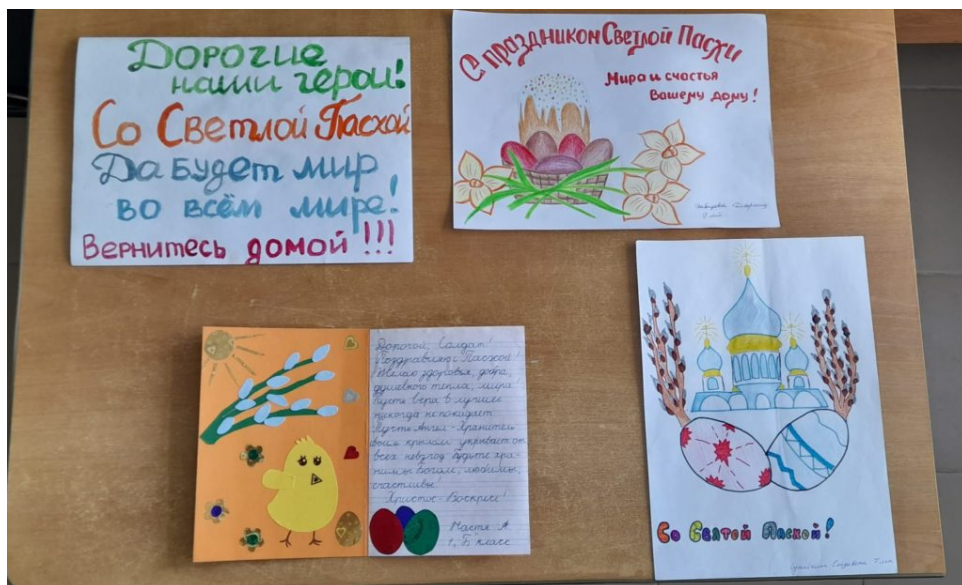 Дорогие
наши герои!
Со Светлой Пасхой
Да будет мир
во всём мире!
Вернитесь домой!!!
С праздником Светлой Пасхи
Мира и счастья
Вашему дому!
Дорогой, Солдат!
Поздравляю с Пасхой!
Желаю здоровья, добра,
душевного тепла, мира!
Пусть вера в лучшее
никогда не покидает
Пусть Ангел-Хранитель
своим крылом укрывает от
всех невзгод. Будьте хра-
нимы Богом, любимы,
счастливы!
Христос-Воскрес!
Настя А
1 „Б" класс
Со Святой Пасхой!